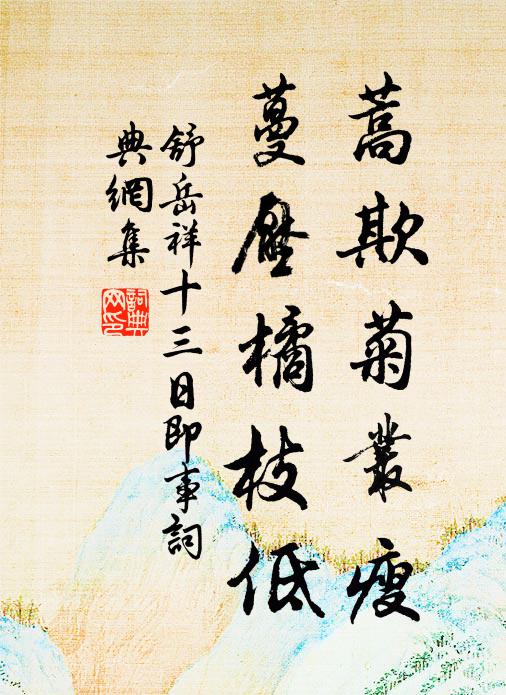 蒿欺菊叢瘦
蔓壓橘枝低
舒岳祥十三日即事詞
典網集
詞典網印